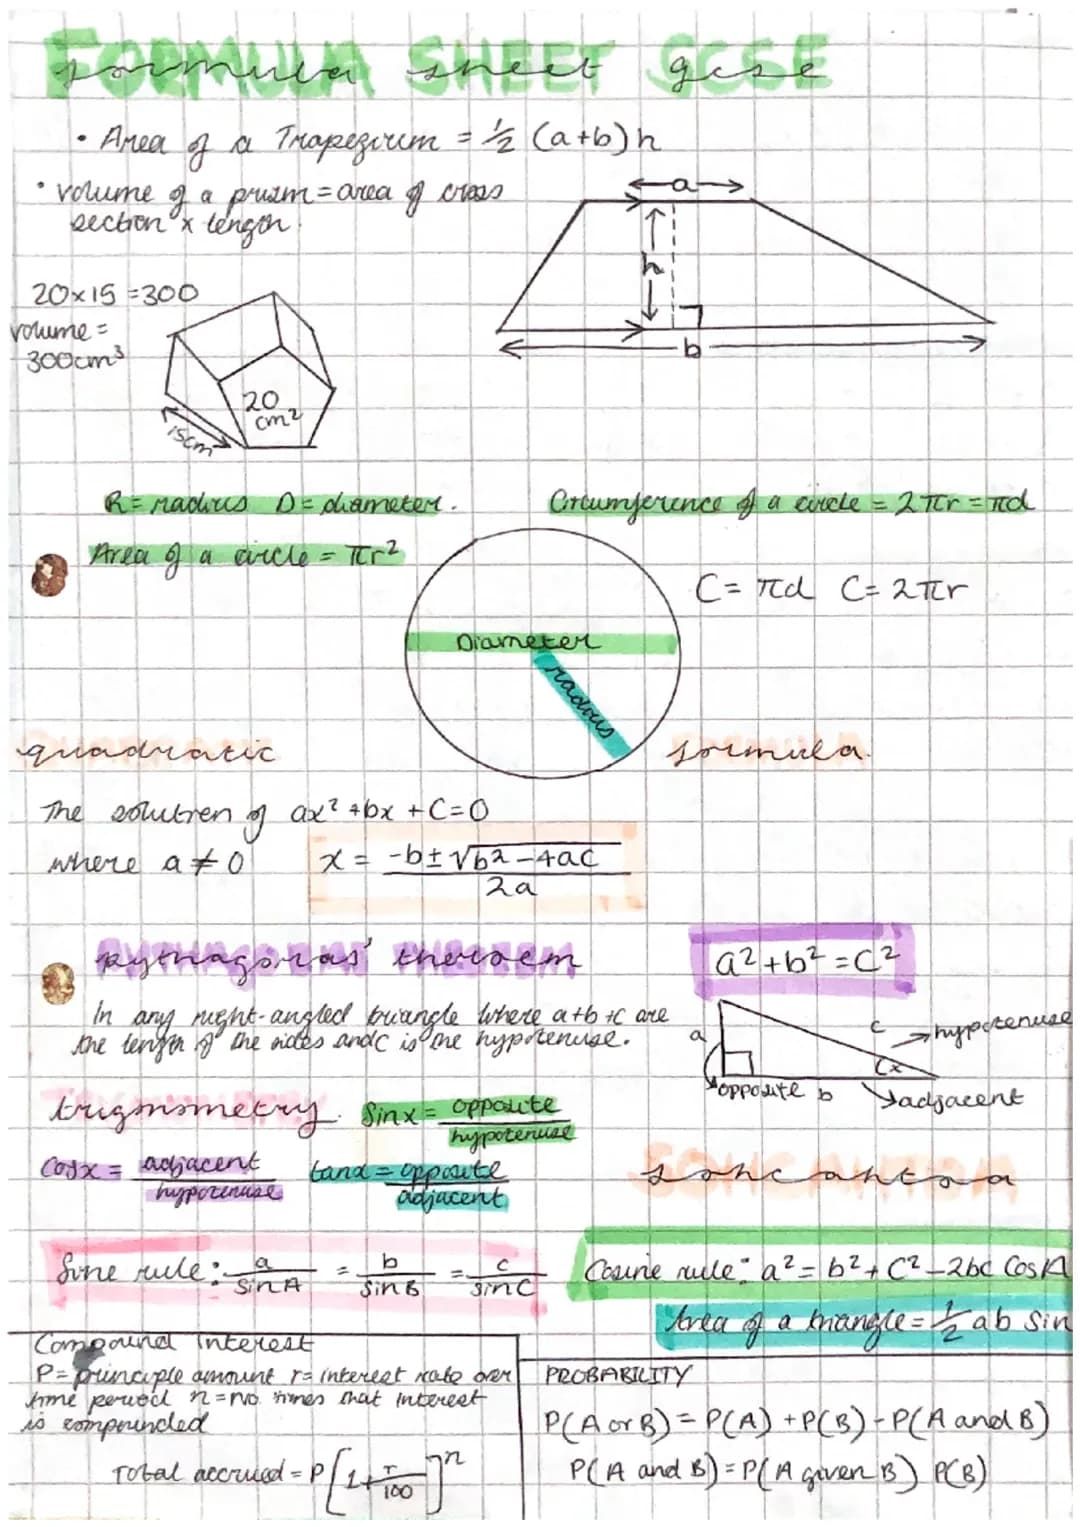 FORMULA SHEET GCSE
formula sheet gcse
• Area of a Trapezium = ½ (a+b)h
• volume of a prism = area of cross
section x length.
a
h
b
20×15 = 300
volume =
300cm³
20
cm²
15cm
R = radius D = diameter.
Circumference of a circle = 2πr = πd
Area of a circle = πr²
C = πd C = 2πr
Diameter
radius
quadratic formula.
The solution of ax² + bx + C = 0
where a ≠ 0 x = -b±√b²-4ac / 2a
PYTHAGORAS' THEOREM
pythagoras' theroem
a² + b² = C²
In any right-angled triangle where a+b+c are
the length of the sides and c is the hypotenuse.
a
c → hypotenuse
x
opposite b adjacent
trigonometry. Sinx = opposite / hypotenuse
Cosx = adjacent / hypotenuse tanx = opposite / adjacent
SOHCAHTOA
sohcahtoa
Sine rule: a / SinA = b / SinB = c / SinC
Cosine rule: a² = b² + C² - 2bc CosA
Area of a triangle = ½ ab Sin
Compound Interest
P = principle amount r = interest rate over
time period n = no. times that interest
is compounded
Total accrued = P[1 + r/100]ⁿ
PROBABILITY
P(A or B) = P(A) + P(B) - P(A and B)
P(A and B) = P(A given B) P(B)